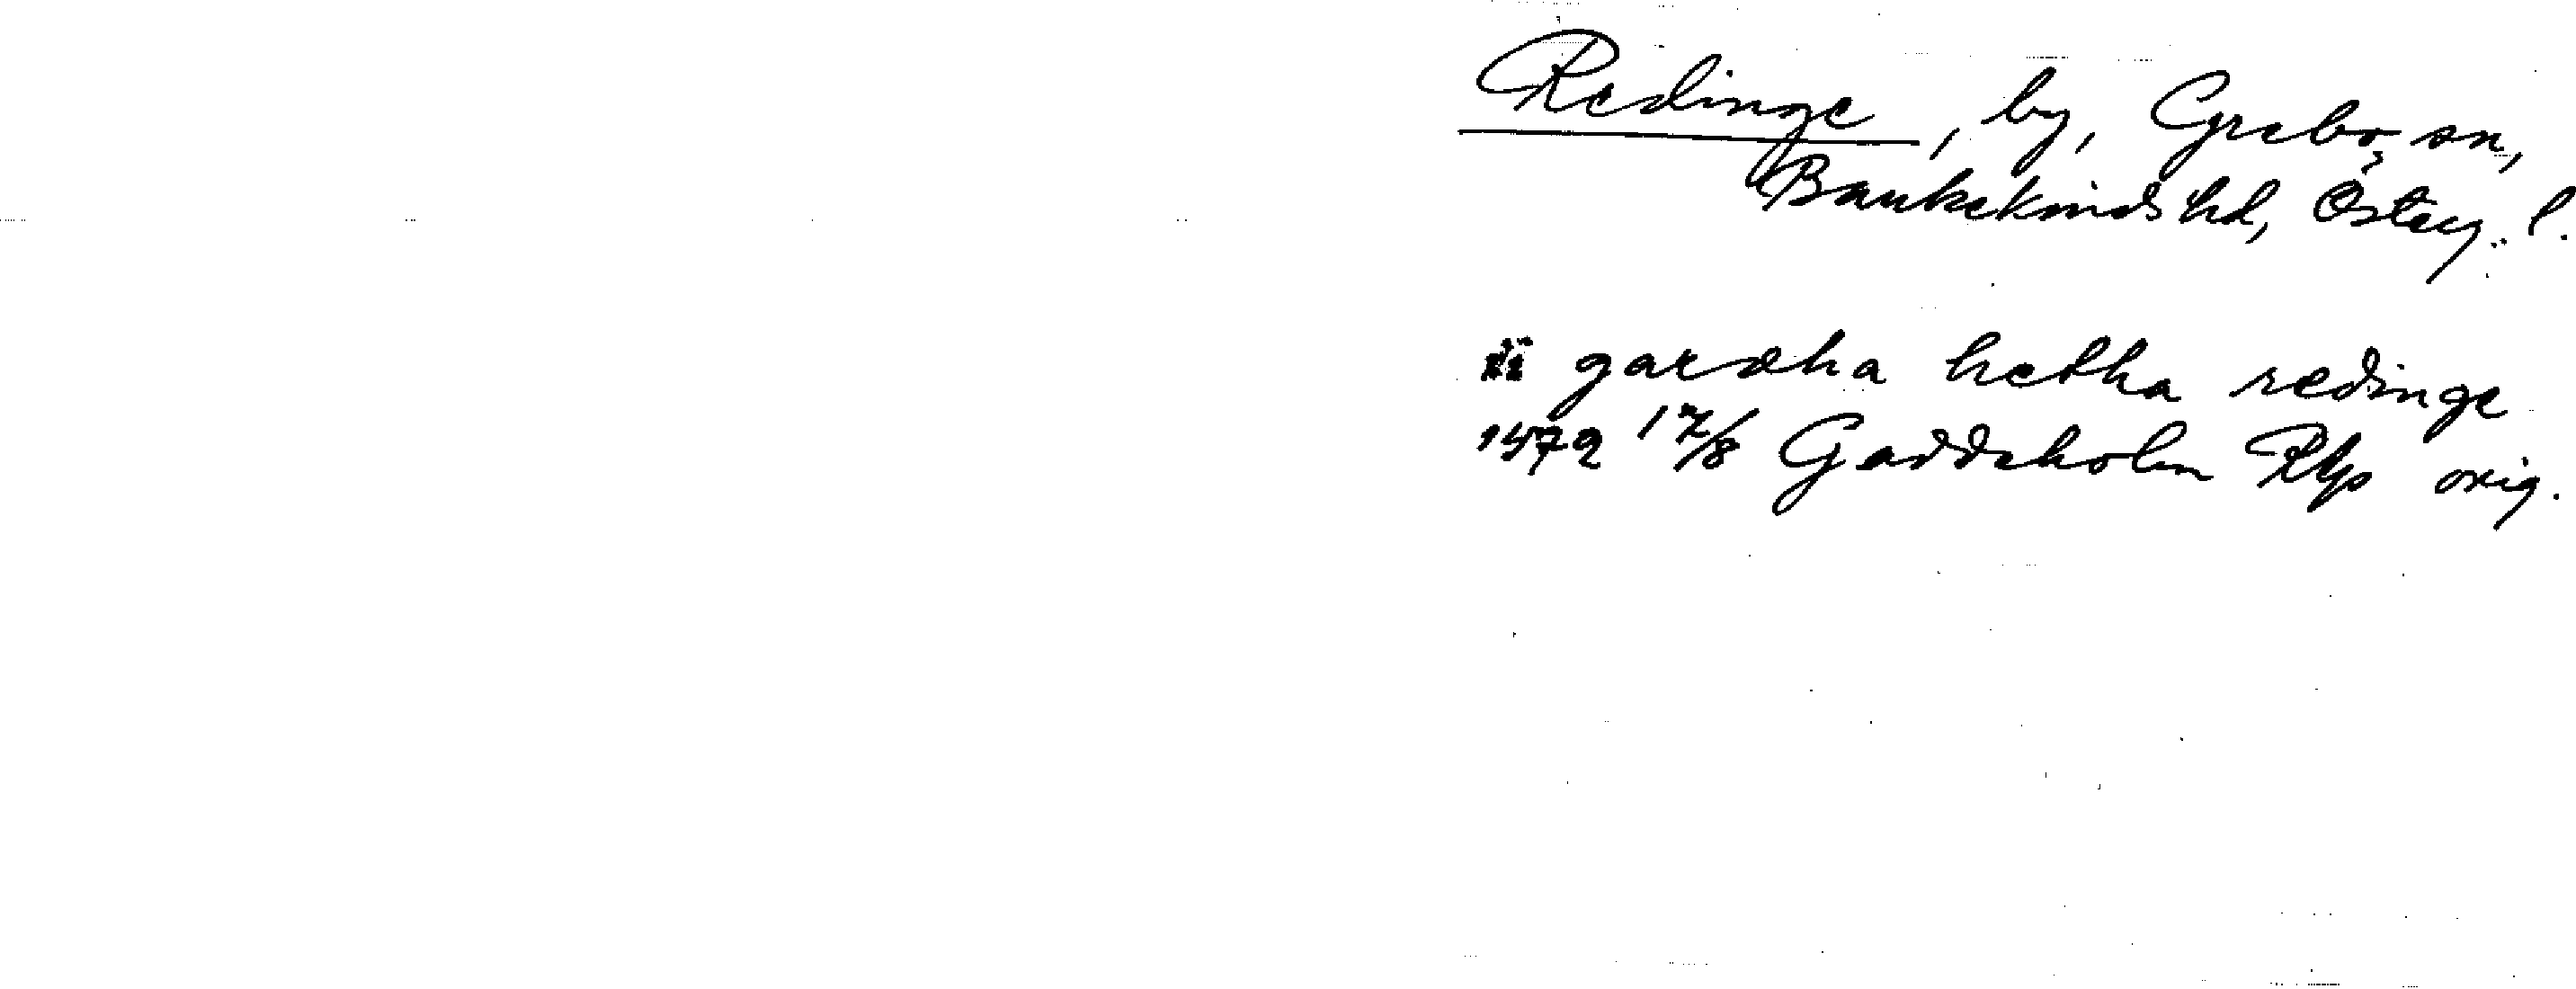 Redinge, by, Grebo sn,
Bankekinds hd, Österg. l.
ii gardha hetha redinge
1472 17/8 Gaddaholm RAp orig.